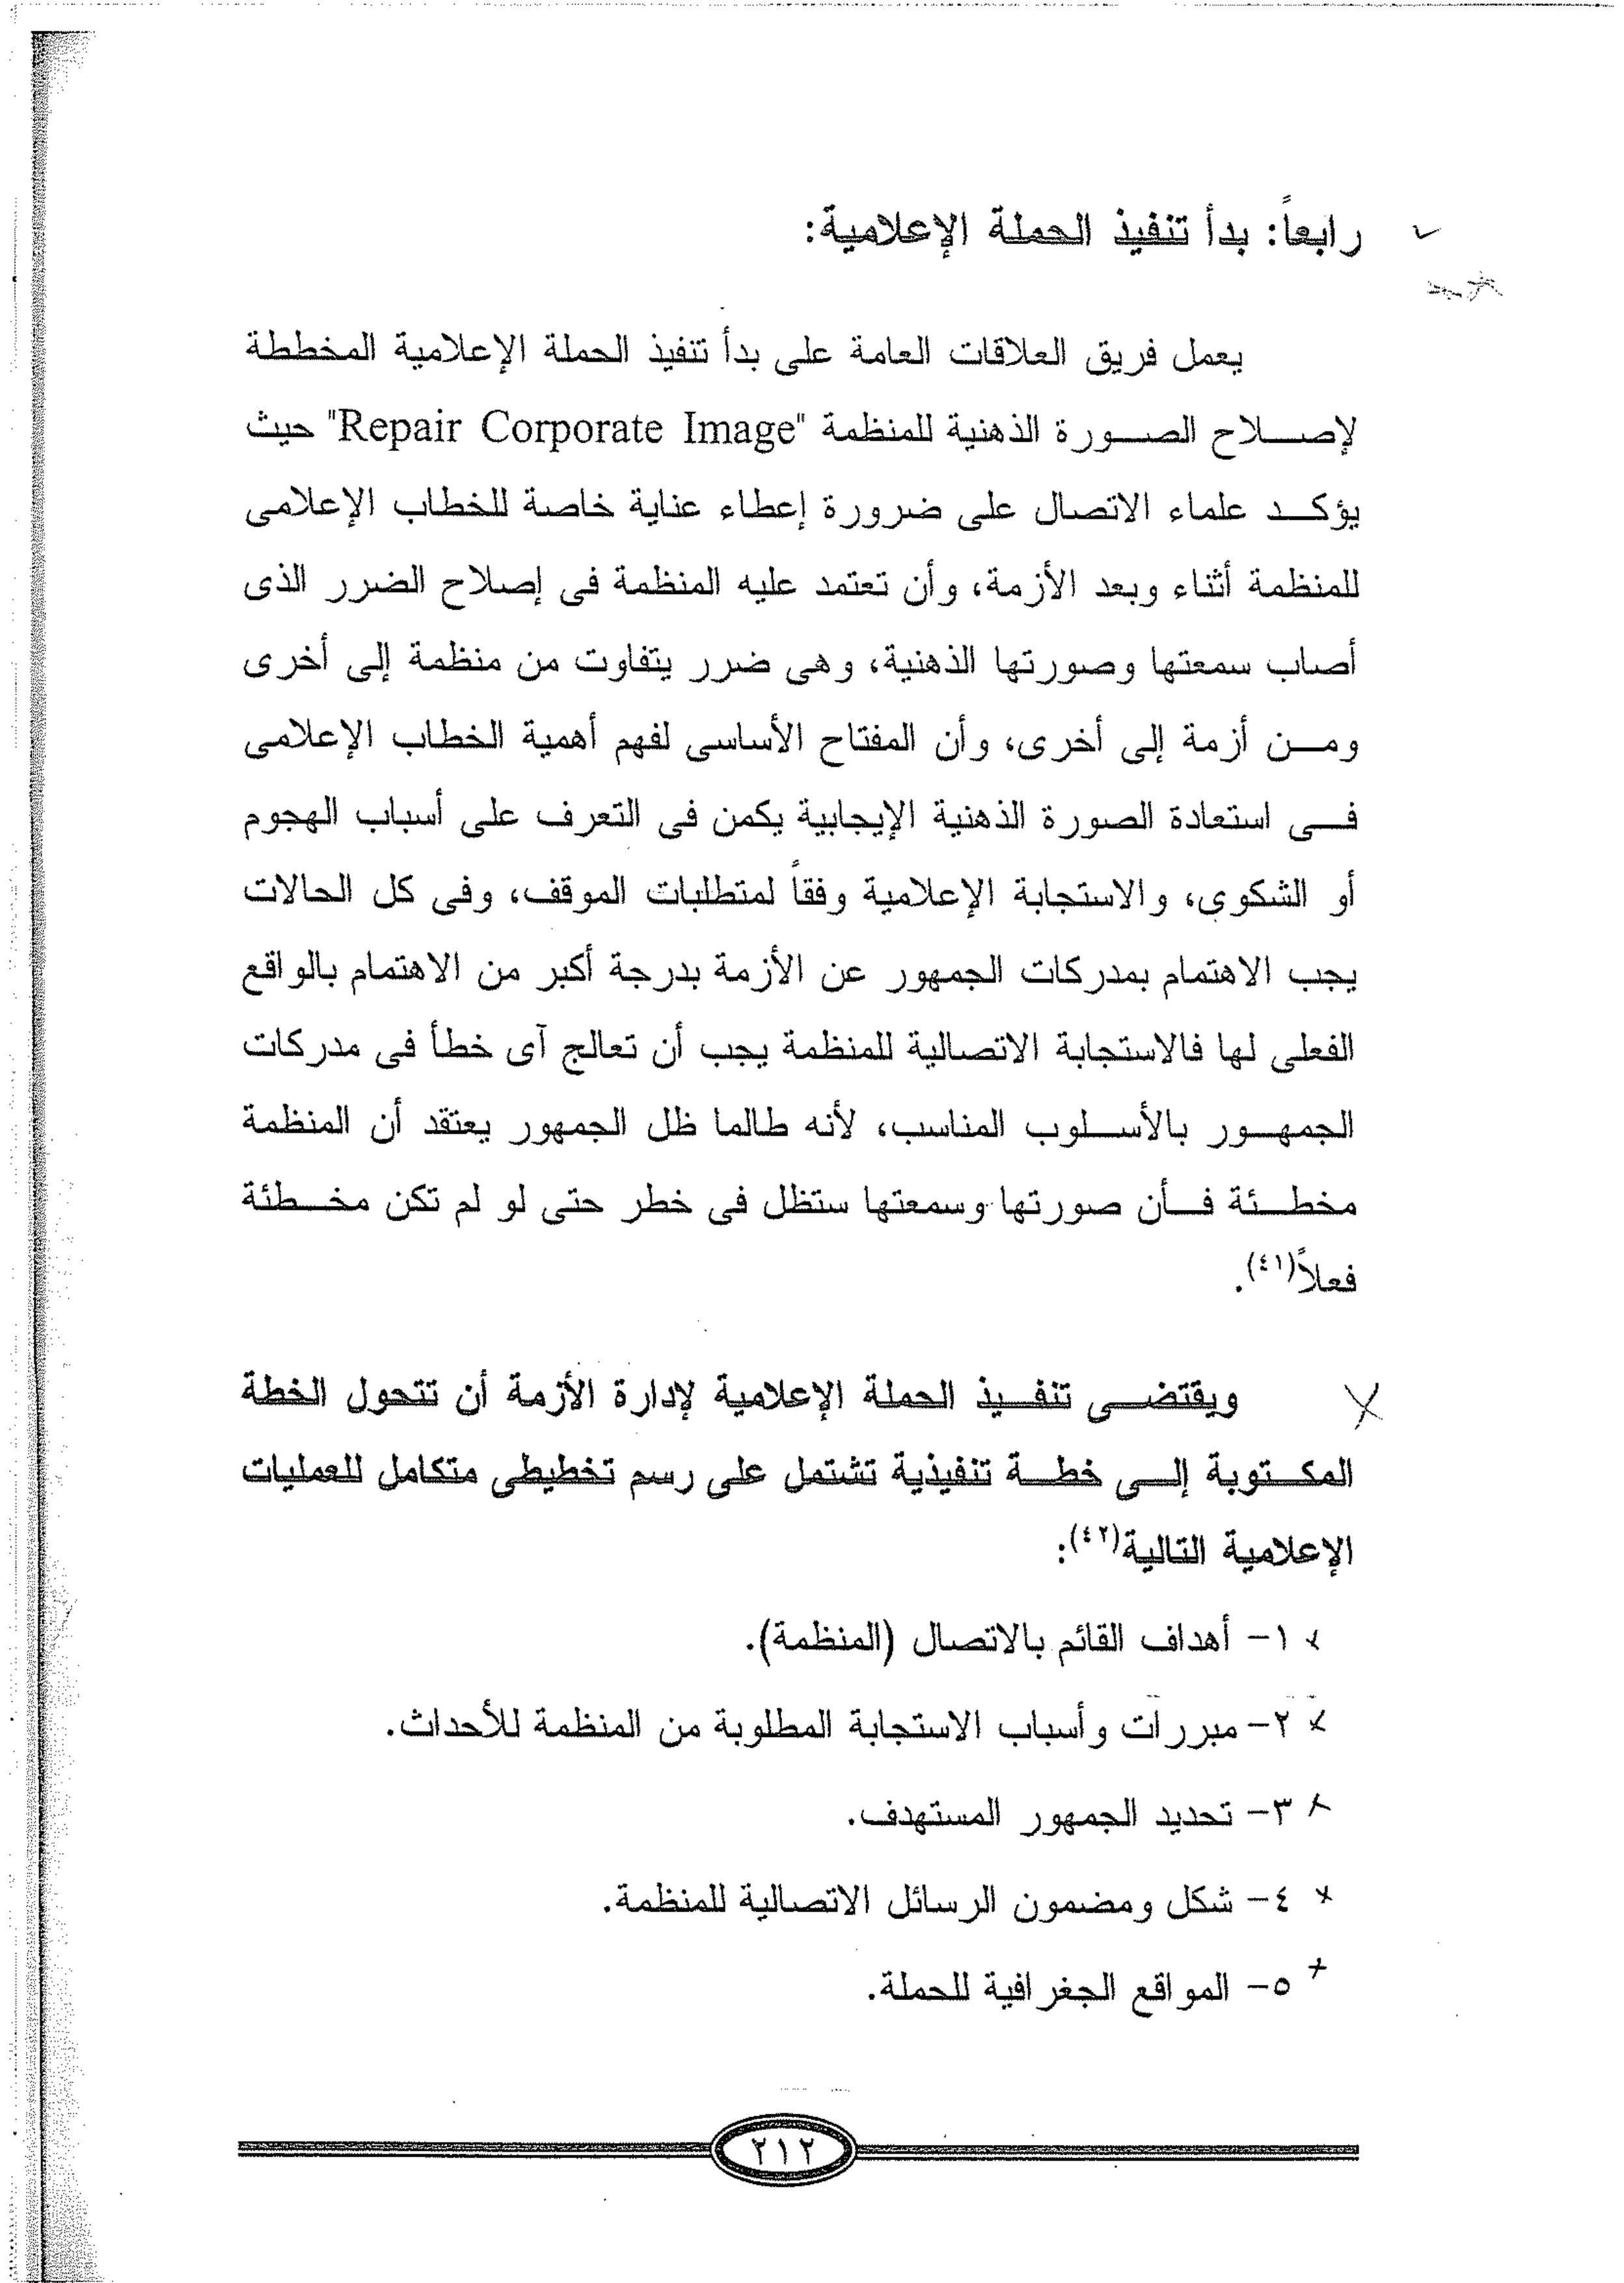 رابعاً: بدأ تنفيذ الحملة الإعلامية:
يعمل فريق العلاقات العامة على بدأ تنفيذ الحملة الإعلامية المخططة
لإصلاح الصورة الذهنية للمنظمة "Repair Corporate Image" حيث
يؤكد علماء الاتصال على ضرورة إعطاء عناية خاصة للخطاب الإعلامى
للمنظمة أثناء وبعد الأزمة، وأن تعتمد عليه المنظمة فى إصلاح الضرر الذى
أصاب سمعتها وصورتها الذهنية، وهى ضرر يتفاوت من منظمة إلى أخرى
ومن أزمة إلى أخرى، وأن المفتاح الأساسى لفهم أهمية الخطاب الإعلامى
فى استعادة الصورة الذهنية الإيجابية يكمن فى التعرف على أسباب الهجوم
أو الشكوى، والاستجابة الإعلامية وفقاً لمتطلبات الموقف، وفى كل الحالات
يجب الاهتمام بمدركات الجمهور عن الأزمة بدرجة أكبر من الاهتمام بالواقع
الفعلى لها فالاستجابة الاتصالية للمنظمة يجب أن تعالج آى خطأ فى مدركات
الجمهور بالأسلوب المناسب، لأنه طالما ظل الجمهور يعتقد أن المنظمة
مخطئة فأن صورتها وسمعتها ستظل فى خطر حتى لو لم تكن مخطئة
فعلاً(٤١).
ويقتضى تنفيذ الحملة الإعلامية لإدارة الأزمة أن تتحول الخطة
المكتوبة إلى خطة تنفيذية تشتمل على رسم تخطيطى متكامل للعمليات
الإعلامية التالية(٤٢):
١- أهداف القائم بالاتصال (المنظمة).
٢- مبررات وأسباب الاستجابة المطلوبة من المنظمة للأحداث.
٣- تحديد الجمهور المستهدف.
٤- شكل ومضمون الرسائل الاتصالية للمنظمة.
٥- المواقع الجغرافية للحملة.
٢١٢